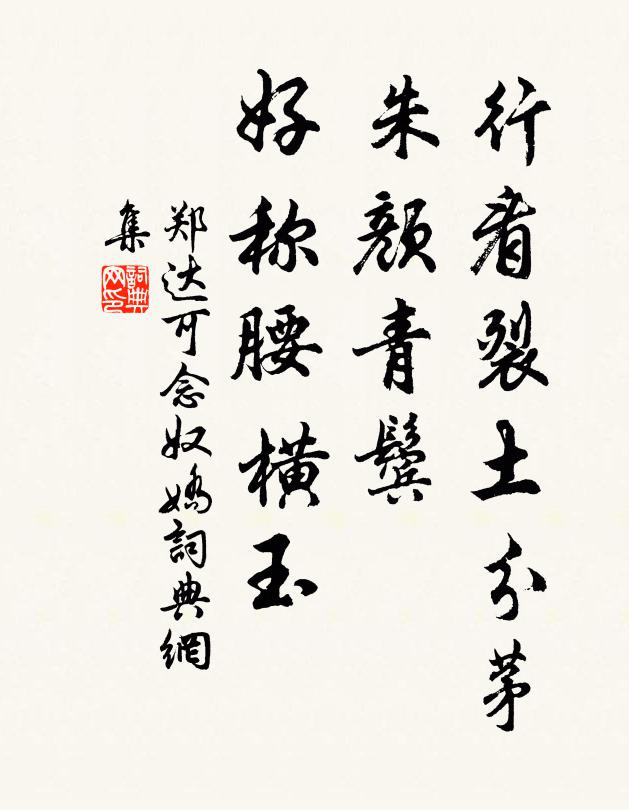 行看裂土分茅
朱颜青鬓
好称腰横玉
郑达可念奴娇詞典網
集
詞典
网印